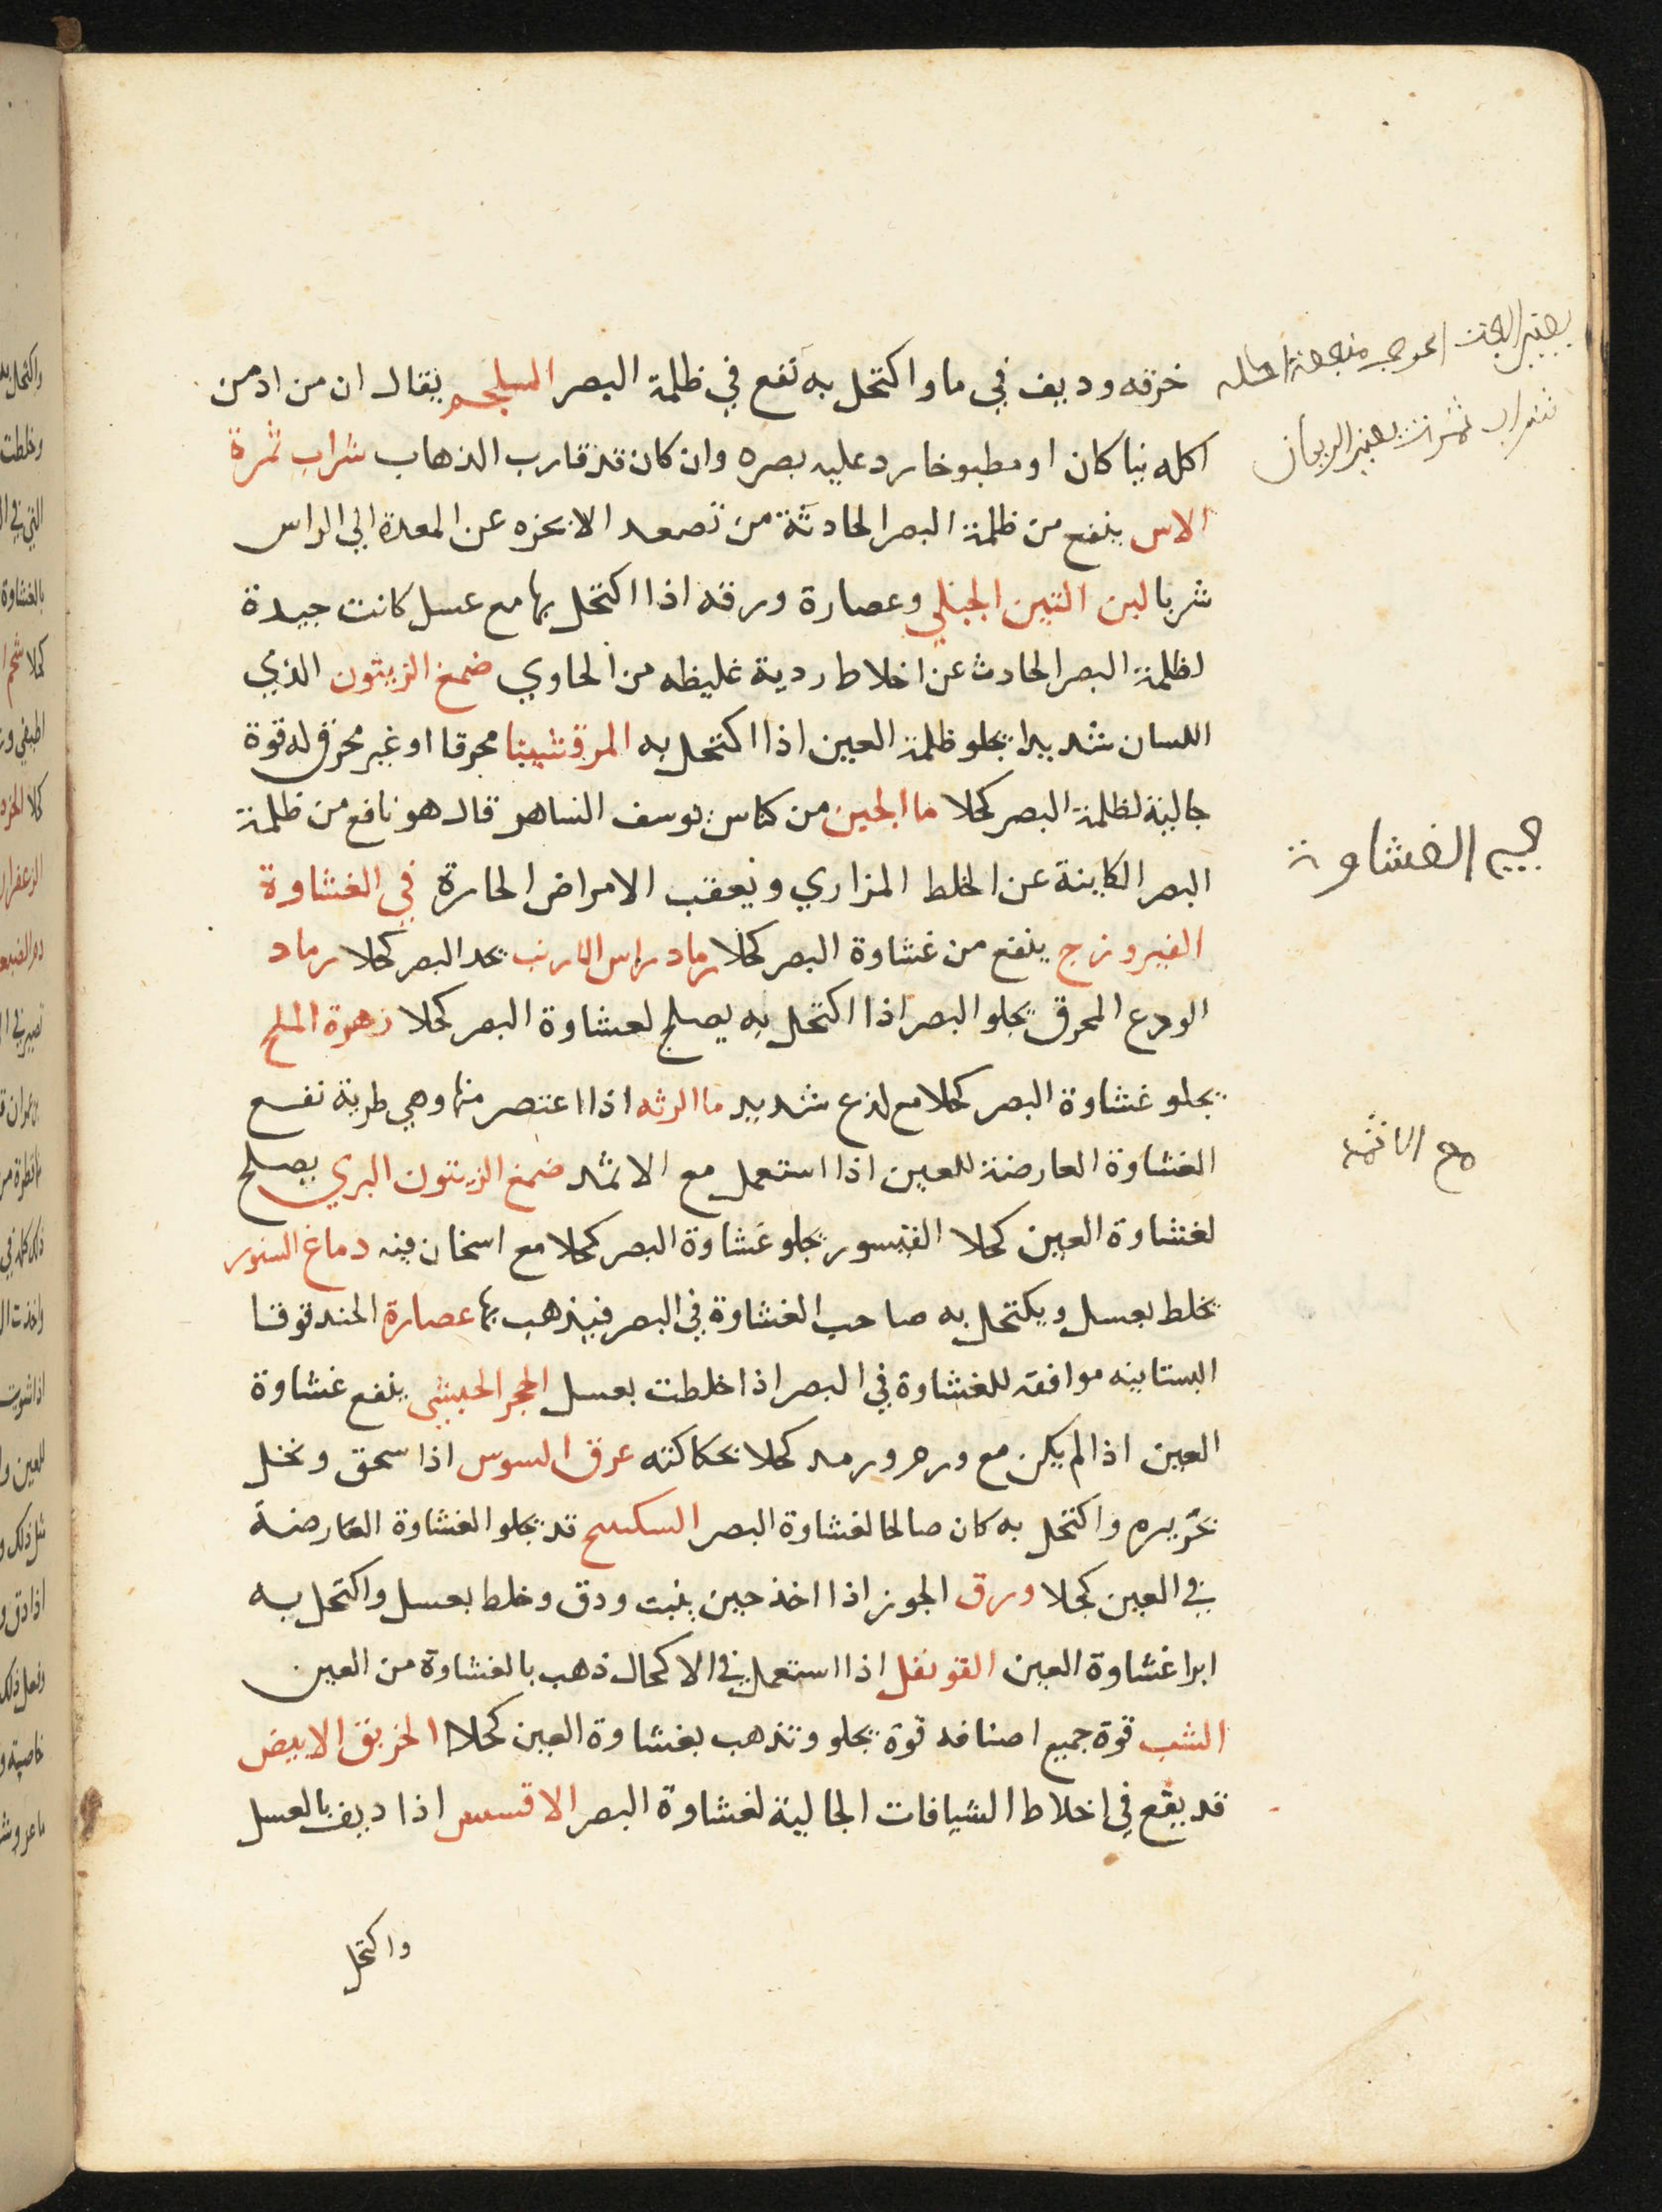 خرقه وديف في ما واكتحل به نفع في ظلمة البصر السلجم يقال ان من ادمن
اكله نيا كان او مطبوخا رد عليه بصره وان كان قد قارب الذهاب شراب ثمرة
الاس ينفع من ظلمة البصر الحادثة من تصعد الابخره عن المعدة الي الراس
شربا لبن التين الجبلي وعصارة ورقه اذا اكتحل بها مع عسل كانت جيدة
لظلمة البصر الحادث عن اخلاط ردية غليظه من الحاوي ضمغ الزيتون الذي
اللسان شديدا يجلو ظلمة العين اذا اكتحل به المرقشيثا محرقا او غير محرق له قوة
جالية لظلمة البصر كحلا ما الجبن من كناش يوسف الساهر قال هو نافع من ظلمة
البصر الكاينة عن الخلط المراري وبعقب الامراض الحارة في الغشاوة
الفيروزج ينفع من غشاوة البصر كحلا رماد راس الارنب يحد البصر كحلا رماد
الودع المحرق يجلو البصر اذا اكتحل به يصلح لعشاوة البصر كحلا زهرة الملح
يجلو غشاوة البصر كحلا مع لذع شديد ما الرثه اذا اعتصر منها وهي طرية نفع
الغشاوة العارضة للعين اذا استعمل مع الاثمد ضمغ الزيتون البري يصلح
لغشاوة العين كحلا الفيسور يجلو غشاوة البصر كحلا مع اسخان فيه دماغ السنور
يخلط بعسل ويكتحل به صاحب الغشاوة في البصر فيذهب بها عصارة الحندقوقا
البستانيه موافقه للغشاوة في البصر اذا خلطت بعسل الحجر الحبشي ينفع غشاوة
العين اذا لم يكن مع ورم ورمد كحلا بحكاكته عرق السوس اذا سحق ونخل
بحريره واكتحل به كان صالحا لغشاوة البصر السكبينج قد يجلو الغشاوة العارضة
في العين كحلا ورق الجوز اذا اخذ حين ينبت ودق وخلط بعسل واكتحل به
ابرا غشاوة العين القرنفل اذا استعمل في الاكحال ذهب بالغشاوة من العين
الشب قوة جميع اصنافه قوة تجلو وتذهب بغشاوة العين كحلا الخربق الابيض
قد يقع في اخلاط الشيافات الجالية لغشاوة البصر الاقسس اذا ديف بالعسل
واكتحل
شراب ثمرات يعني الريحان
جيم الغشاوة
مع الاثمد